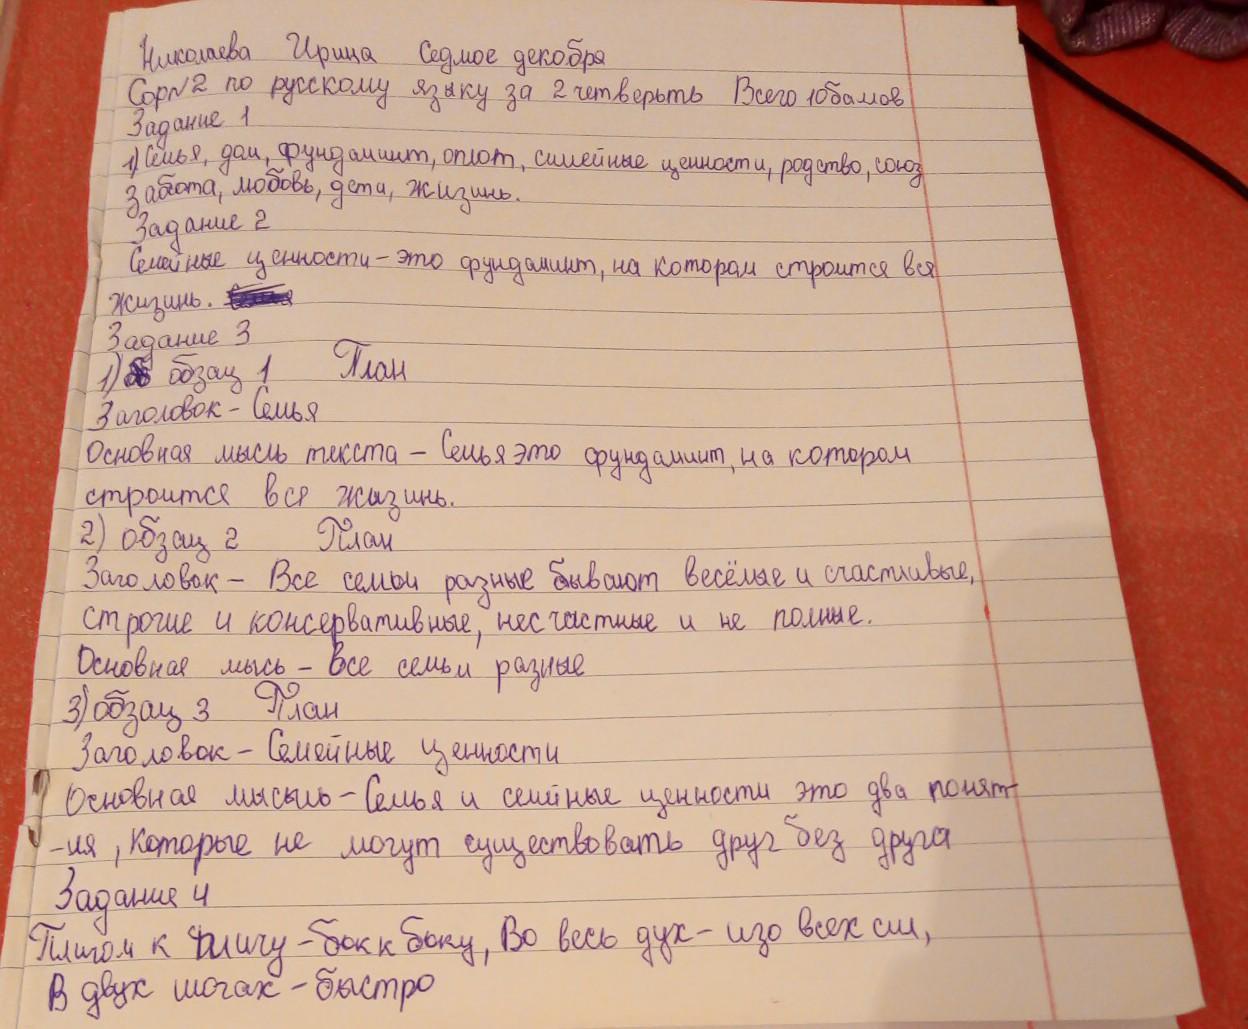 Николаева Ирина Седмое декобря
Сор№2 по русскому языку за 2 четверьть Всего 10 балов
Задание 1
1) Семья, дом, фундамиит, оплот, симейные ценности, родство, союз
забота, любовь, дети, жизинь.
Задание 2
Семейные ценности - это фундамиит, на котором строится вся
жизинь.
Задание 3
1) обзац 1 План
Заголовок - Семья
Основная мысль текста - Семья это фундамиит, на котором
строится вся жизинь.
2) обзац 2 План
Заголовок - Все семьи разные бывают весёлые и счастливые,
строгие и консервативные, несчастные и не полные.
Основная мысь - Все семьи разные
3) обзац 3 План
Заголовок - Семейные ценности
Основная мысыль - Семья и семйные ценности это два понят-
-ия, которые не могут существовать друг без друга
Задание 4
Плигом к пличу - бок к боку, Во весь дух - изо всех сил,
В двух шогах - быстро